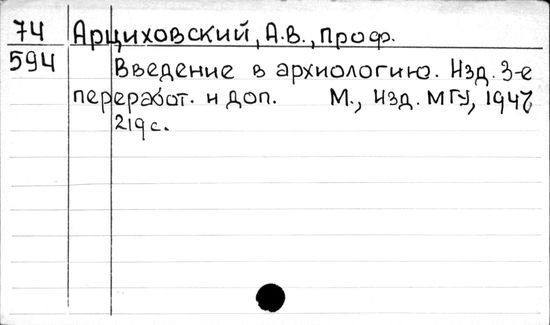 74 Арциховский, А.В., Проф.
594 Введение в архиологию. Изд. 3-е
переработ. и доп. М., Изд. МГУ, 1947
219 с.